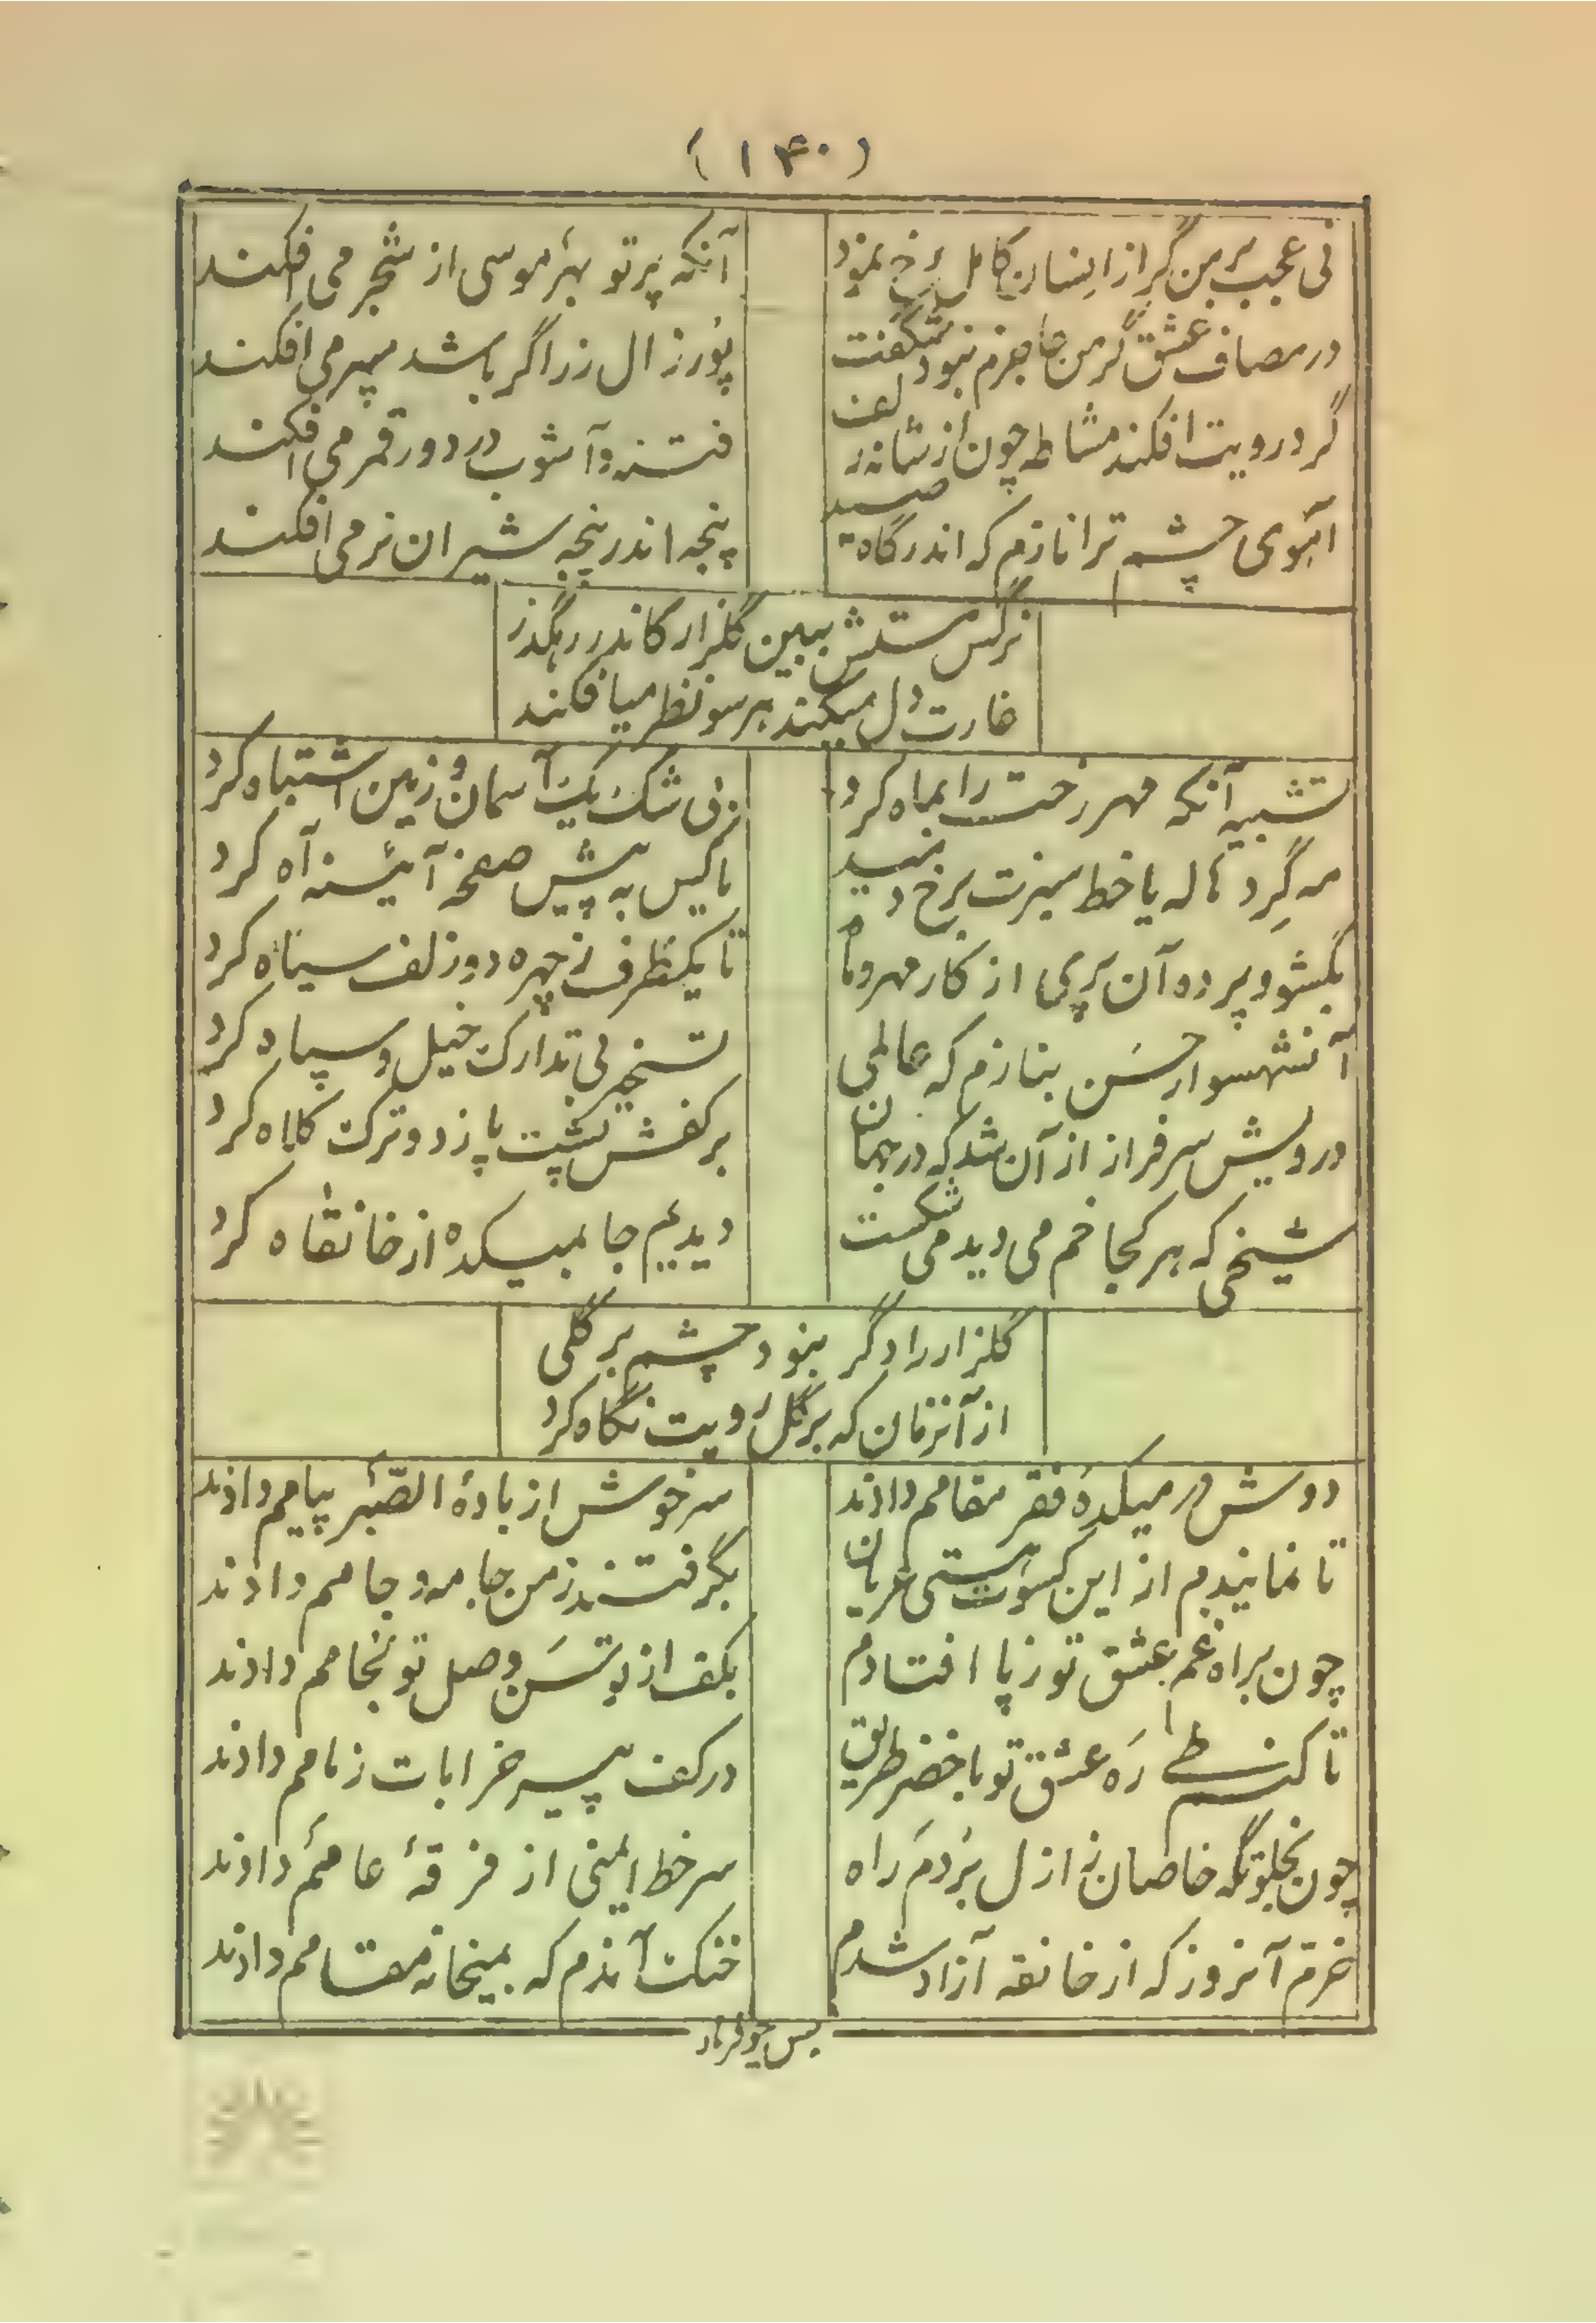 (۱۴۰)
نی عجب بر من گر از انسان کامل رخ نمود
آنکه پرتو بهرٔ موسی از شجر می افکند
در مصاف عشق گر من عاجزم نبود شگفت
پُور زال زر اگر باشد سپر می افکند
گر در رویت افکند مشاطه چون از شانه زلف
فتنه و آشوب در دور قمر می افکند
آهوی چشم ترا نازم که اندر گاه صید
پنجه اندر پنجه شیران نر می افکند
نرگس مستش ببین گلزار کاندر رهگذر
غارت دل میکند هر سو نظر میافکند
تشبیه آنکه مهر رخت را بماه کرد
بی شک یک آسمان و زمین اشتباه کرد
مه گِرد هاله یا خط سبزت برخ دمید
یا کس به پیش صفحهٔ آئینه آه کرد
بگشود پرده آن پری از کار مهر و ماه
تا یکطرف ز چهره دو زلف سیاه کرد
آنشهسوار حسَن بنازم که عالمی
تسخیر بی تدارک خیل و سپاه کرد
درویش سرفراز از آن شد که در جهان
بر کفش پشت پا زد و ترک کلاه کرد
شیخی که هر کجا خم می دید می شکست
دیدیم جا بمیکده از خانقاه کرد
گلزار را دگر نبود چشم بر گلی
از آنزمان که بر گل رویت نگاه کرد
دوش در میکدهٔ فقر مقامم دادند
سرخوش از بادهٔ الصّبر پیامم دادند
تا نمانیدم از این کسوت هستی عریان
بگرفتند ز من جامه و جامم دادند
چون براه غم عشق تو ز پا افتادم
بکف از توسَن وصل تو لجامم دادند
تا کنم طی رَه عشق تو با خضر طریق
در کف پیر خرابات زمامم دادند
چون بخلوتگه خاصان ز ازل بُردم راه
سرخط ایمنی از فرقهٔ عامم دادند
خرم آنروز که از خانقه آزاد شدم
خنک آندم که بمیخانه مقامم دادند
بس چو فرهاد